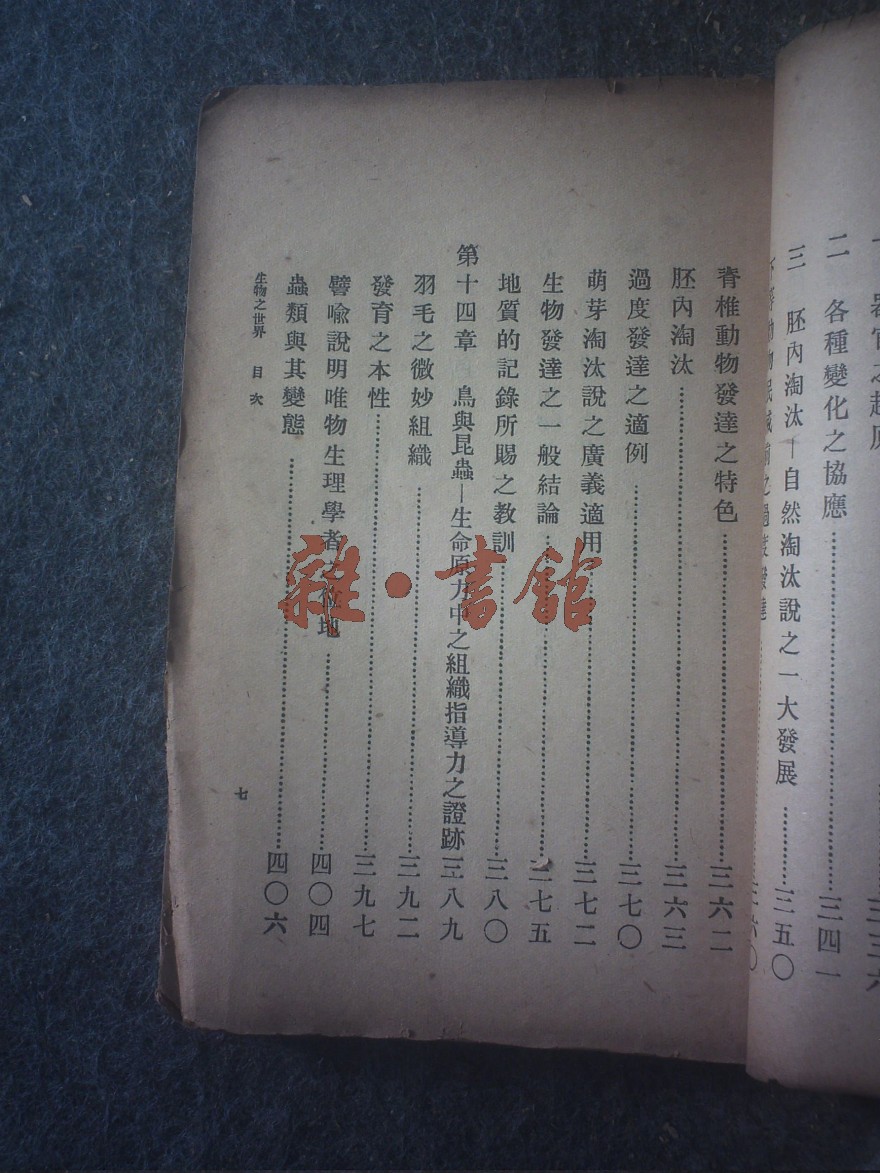 器官之起原……三三六
二 各種變化之協應……三四一
三 胚內淘汰—自然淘汰說之一大發展……三五〇
動物 滅 之過度發達……三六〇
脊椎動物發達之特色……三六二
胚內淘汰……三六三
過度發達之適例……三七〇
萌芽淘汰說之廣義適用……三七二
生物發達之一般結論……三七五
地質的記錄所賜之教訓……三八〇
第十四章 鳥與昆蟲—生命原力中之組織指導力之證跡 三八九
羽毛之微妙組織……三九二
發育之本性……三九七
譬喻說明唯物生理學者之位地……四〇四
蟲類與其變態……四〇六
生物之世界 目次
七
雜·書館